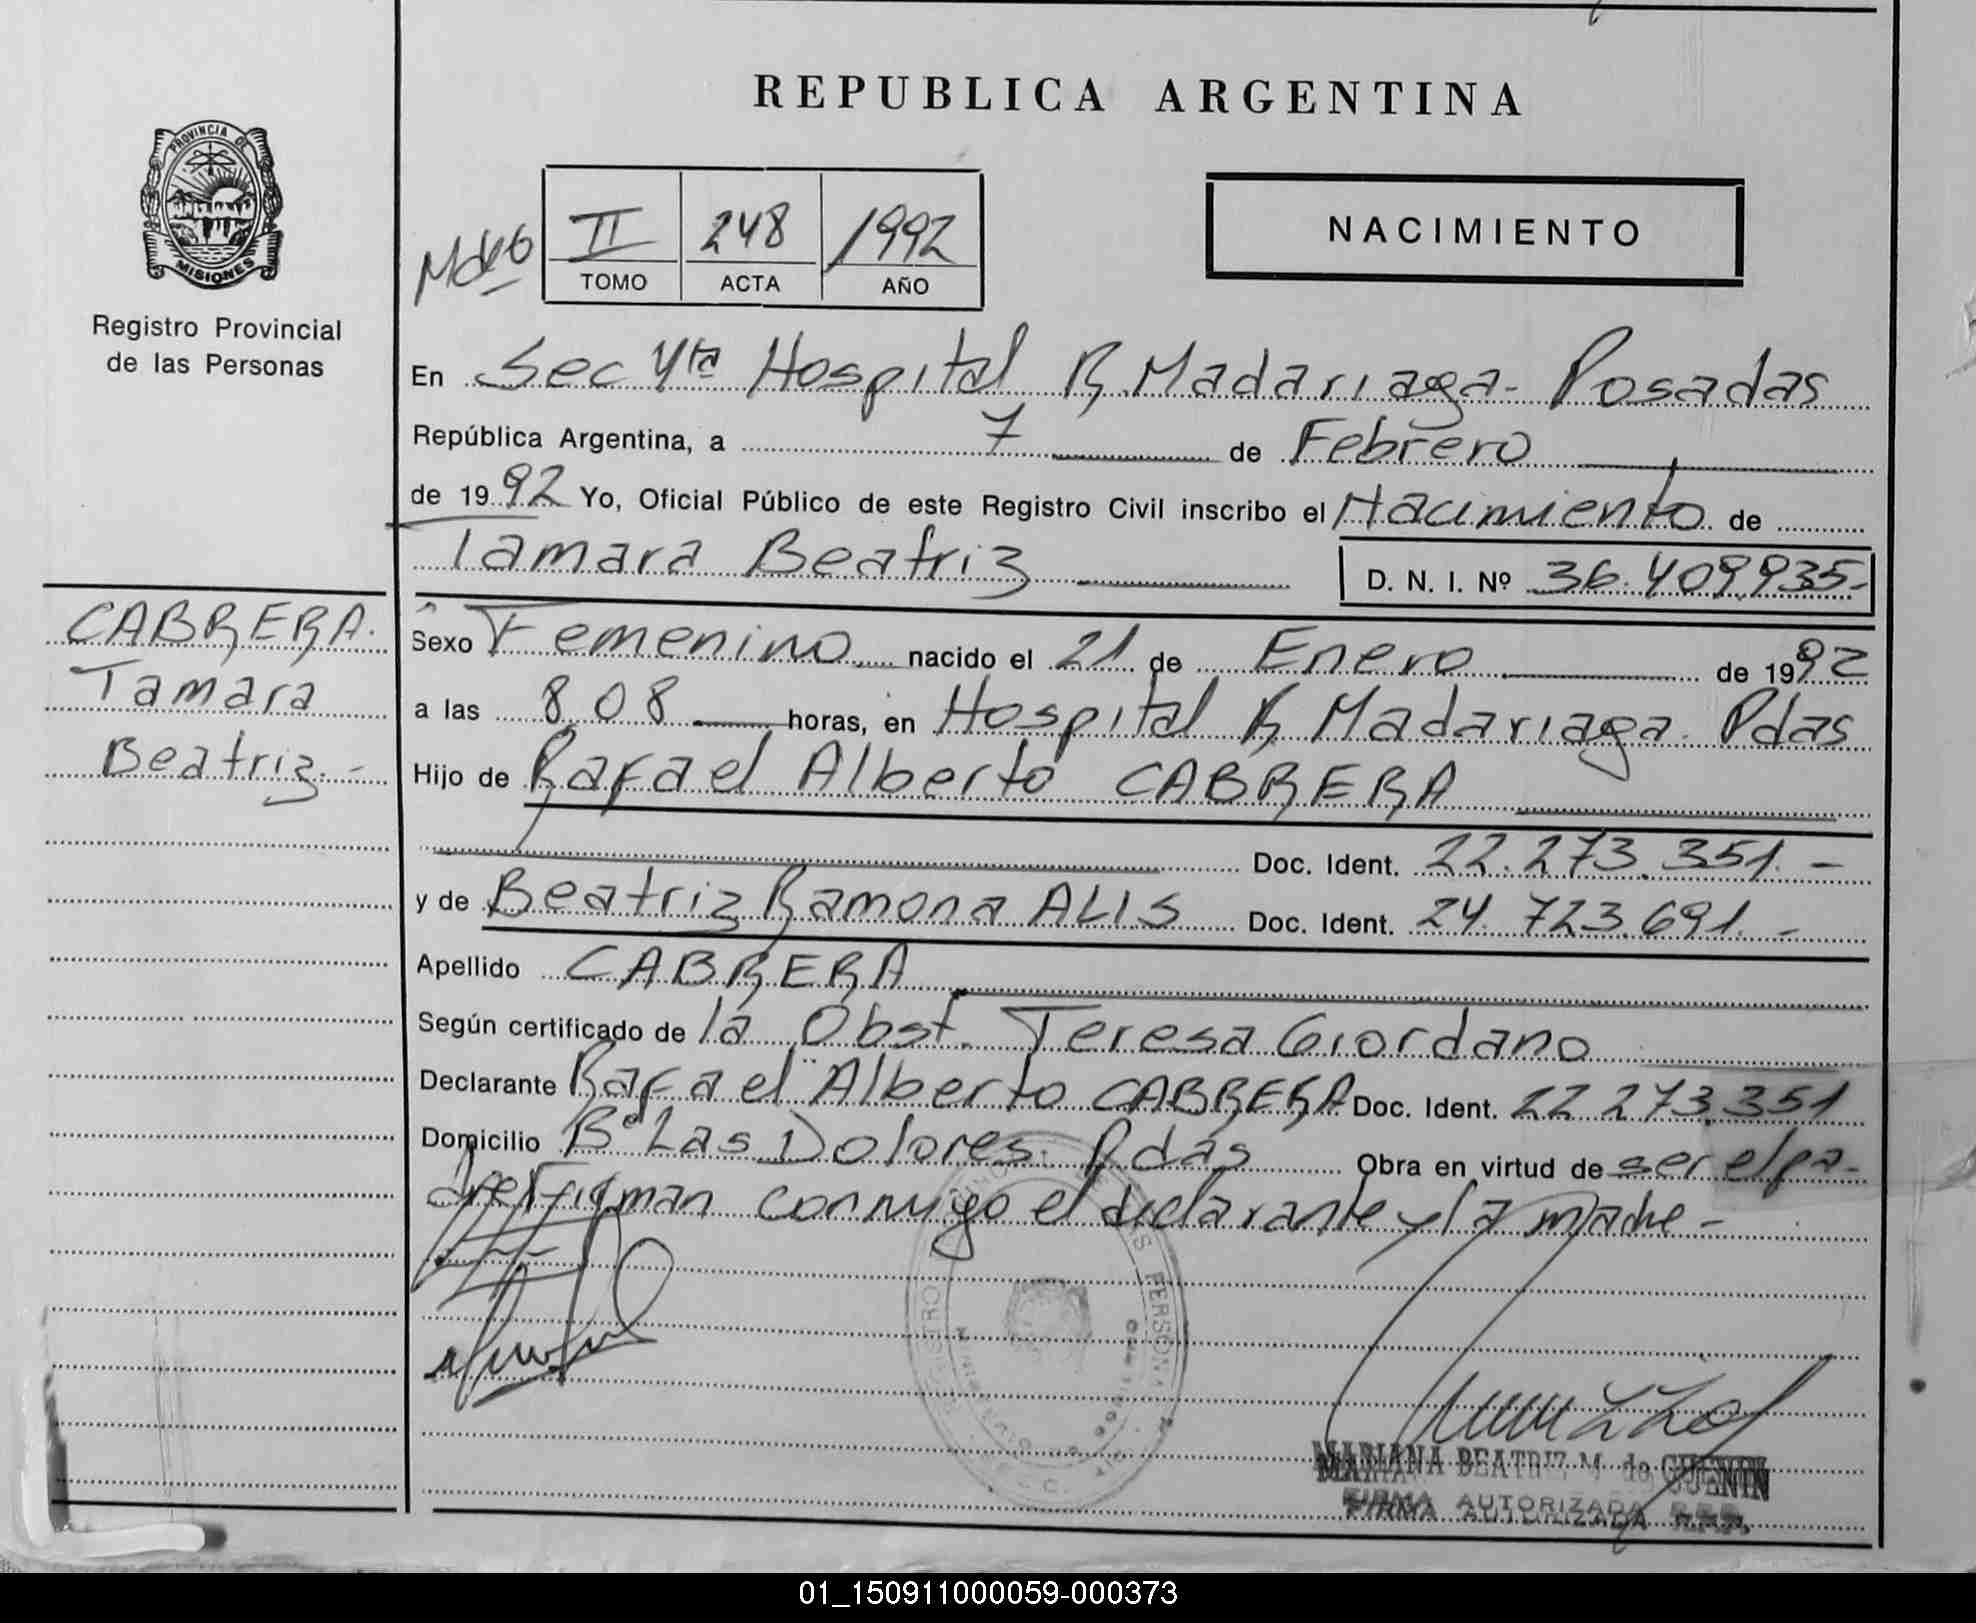 REPUBLICA ARGENTINA
PROVINCIA DE
MISIONES
Registro Provincial
de las Personas
II 248 1992
TOMO ACTA AÑO
NACIMIENTO
En Sec 4ta Hospital R. Madariaga - Posadas
República Argentina, a 7 de Febrero
de 1992 Yo, Oficial Público de este Registro Civil inscribo el Nacimiento de
Tamara Beatriz D. N. I. Nº 36.409.935.-
CABRERA.
Tamara
Beatriz.-
Sexo Femenino nacido el 21 de Enero de 1992
a las 8,08 horas, en Hospital R. Madariaga. Pdas
Hijo de Rafael Alberto CABRERA
Doc. Ident. 22.273.351.-
y de Beatriz Ramona ALIS Doc. Ident. 24.723.691.-
Apellido CABRERA
Según certificado de la Obst. Teresa Giordano
Declarante Rafael Alberto CABRERA Doc. Ident. 22 273.351
Domicilio Bº Las Dolores. Pdas Obra en virtud de ser el pa-
dre. Firman conmigo el declarante y la madre-
REGISTRO PERSONAS
MARIANA BEATRIZ M. de GUENIN
FIRMA AUTORIZADA R.P.P.
01_150911000059-000373